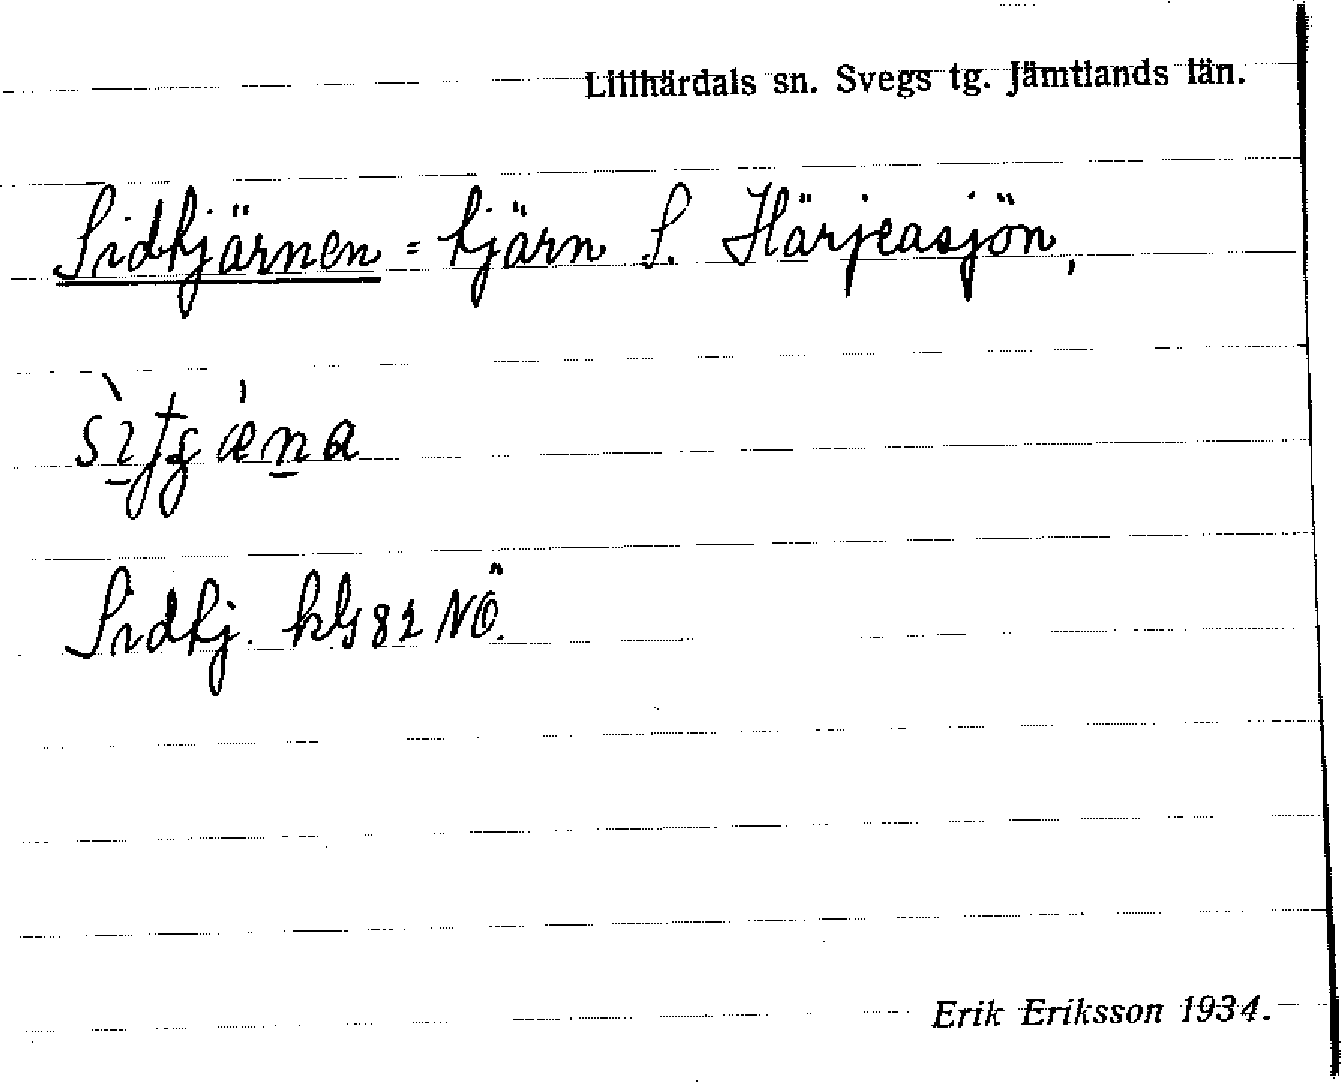 Lillhärdals sn. Svegs tg. Jämtlands län.
Sidtjärnen = tjärn S. Härjeasjön,
Sidtj. kbl 82 NÖ.
Erik Eriksson 1934.